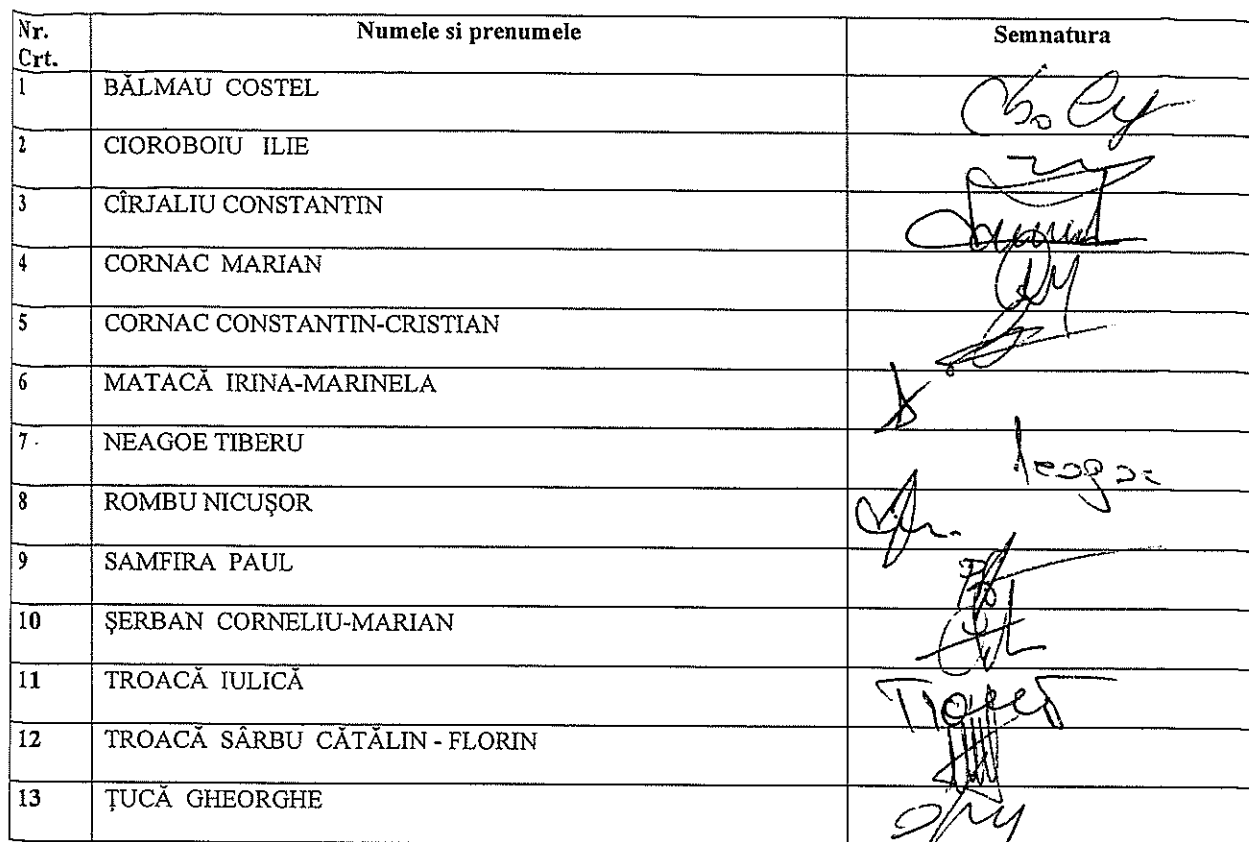 Nr. Crt. Numele si prenumele Semnatura
1 BĂLMAU COSTEL
2 CIOROBOIU ILIE
3 CÎRJALIU CONSTANTIN
4 CORNAC MARIAN
5 CORNAC CONSTANTIN-CRISTIAN
6 MATACĂ IRINA-MARINELA
7 NEAGOE TIBERU
8 ROMBU NICUŞOR
9 SAMFIRA PAUL
10 ŞERBAN CORNELIU-MARIAN
11 TROACĂ IULICĂ
12 TROACĂ SÂRBU CĂTĂLIN - FLORIN
13 ŢUCĂ GHEORGHE